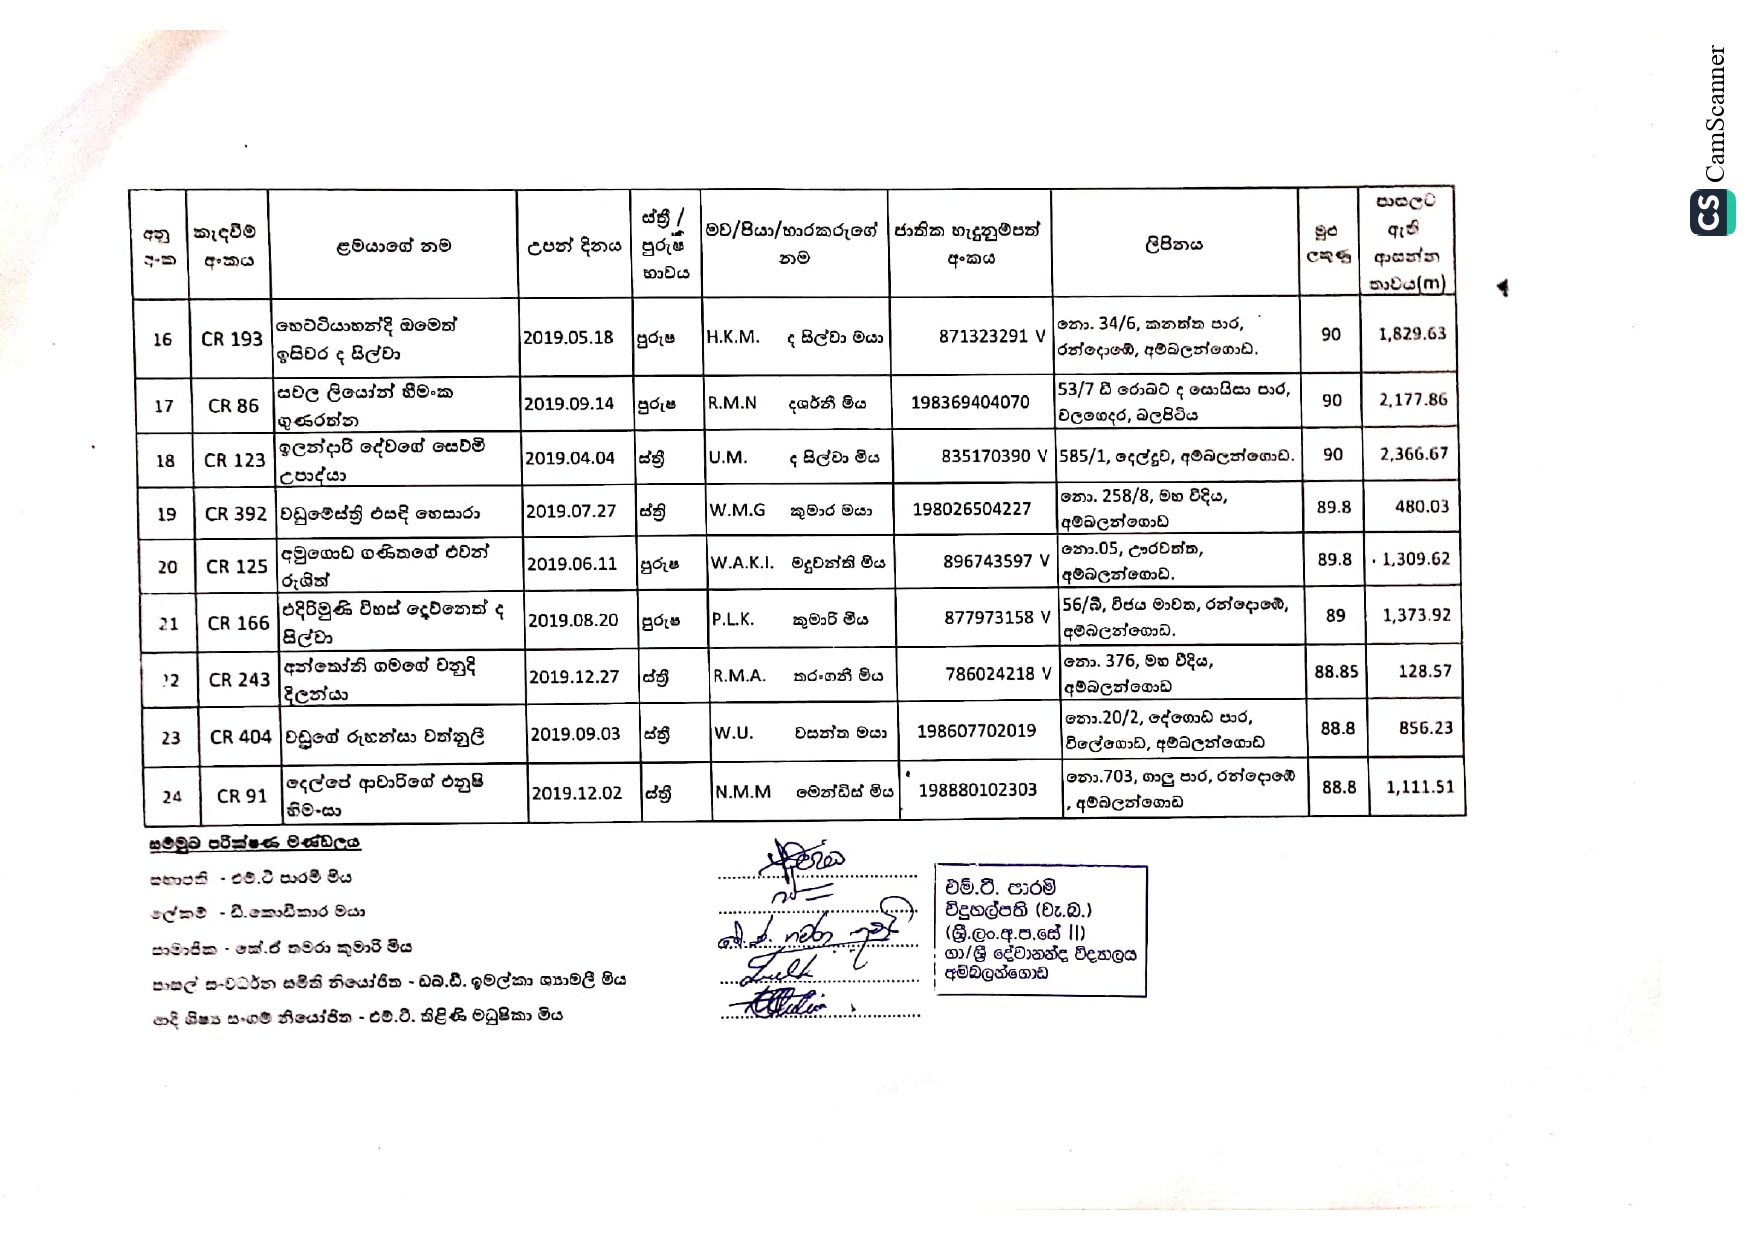 CamScanner
CS
අනු අංක | කැඳවීම් අංකය | ළමයාගේ නම | උපන් දිනය | ස්ත්‍රී / පුරුෂ භාවය | මව/පියා/භාරකරුගේ නම | ජාතික හැඳුනුම්පත් අංකය | ලිපිනය | මුළු ලකුණු | පාසලට ඇති ආසන්න තාවය(m)
16 | CR 193 | හෙට්ටියාහන්දි ඔමෙත් ඉසිවර ද සිල්වා | 2019.05.18 | පුරුෂ | H.K.M. ද සිල්වා මයා | 871323291 V | නො. 34/6, කනත්ත පාර, රන්දොඹේ, අම්බලන්ගොඩ. | 90 | 1,829.63
17 | CR 86 | සවල ලියෝන් හීමංක ගුණරත්න | 2019.09.14 | පුරුෂ | R.M.N දර්ශනී මිය | 198369404070 | 53/7 ඩී රොබට් ද සොයිසා පාර, වලගෙදර, බලපිටිය | 90 | 2,177.86
18 | CR 123 | ඉලන්දාරි දේවගේ සෙව්මි උපාද්‍යා | 2019.04.04 | ස්ත්‍රී | U.M. ද සිල්වා මිය | 835170390 V | 585/1, දෙල්දූව, අම්බලන්ගොඩ. | 90 | 2,366.67
19 | CR 392 | වඩුමේස්ත්‍රි එසඳි හෙසාරා | 2019.07.27 | ස්ත්‍රී | W.M.G කුමාර මයා | 198026504227 | නො. 258/8, මහ වීදිය, අම්බලන්ගොඩ | 89.8 | 480.03
20 | CR 125 | අමුගොඩ ගණිතගේ එවන් රුශිත් | 2019.06.11 | පුරුෂ | W.A.K.I. මදුවන්ති මිය | 896743597 V | නො.05, ඌරවත්ත, අම්බලන්ගොඩ. | 89.8 | 1,309.62
21 | CR 166 | එදිරිමුණි විහස් දෙව්නෙත් ද සිල්වා | 2019.08.20 | පුරුෂ | P.L.K. කුමාරි මිය | 877973158 V | 56/බී, විජය මාවත, රන්දොඹේ, අම්බලන්ගොඩ. | 89 | 1,373.92
22 | CR 243 | අන්තෝනි ගමගේ වනුදි දිලන්යා | 2019.12.27 | ස්ත්‍රී | R.M.A. තරංගනී මිය | 786024218 V | නො. 376, මහ වීදිය, අම්බලන්ගොඩ | 88.85 | 128.57
23 | CR 404 | වඩුගේ රුහන්සා වත්නුලී | 2019.09.03 | ස්ත්‍රී | W.U. වසන්ත මයා | 198607702019 | නො.20/2, දේගොඩ පාර, විලේගොඩ, අම්බලන්ගොඩ | 88.8 | 856.23
24 | CR 91 | දෙල්පේ ආචාරිගේ එනුෂි හිමංසා | 2019.12.02 | ස්ත්‍රී | N.M.M මෙන්ඩිස් මිය | 198880102303 | නො.703, ගාලු පාර, රන්දොඹේ , අම්බලන්ගොඩ | 88.8 | 1,111.51
සම්මුඛ පරීක්ෂණ මණ්ඩලය
සභාපති - එම්.ටී පාරමී මිය
ලේකම් - ඩී.කොඩිකාර මයා
සාමාජික - කේ.ඒ තමරා කුමාරි මිය
පාසල් සංවර්ධන සමිති නියෝජිත - ඩබ්.ඩී. ඉමල්කා ශ්‍යාමලී මිය
ආදි ශිෂ්‍ය සංගම් නියෝජිත - එම්.ටී. කිළිණි මධුෂිකා මිය
එම්.ටී. පාරමි
විදුහල්පති (වැ.බ.)
(ශ්‍රී.ලං.අ.ප.සේ II)
ගා/ශ්‍රී දේවානන්ද විද්‍යාලය
අම්බලන්ගොඩ